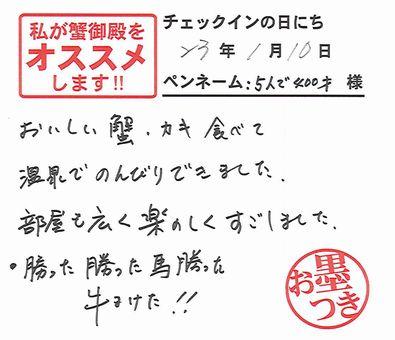 私が蟹御殿を
オススメ
します!!
チェックインの日にち
23年1月10日
ペンネーム:5人で400才 様
おいしい蟹、カキ食べて
温泉でのんびりできました.
部屋も広く楽しくすごしました.
・勝った勝った馬勝った
牛まけた!!
お墨つき